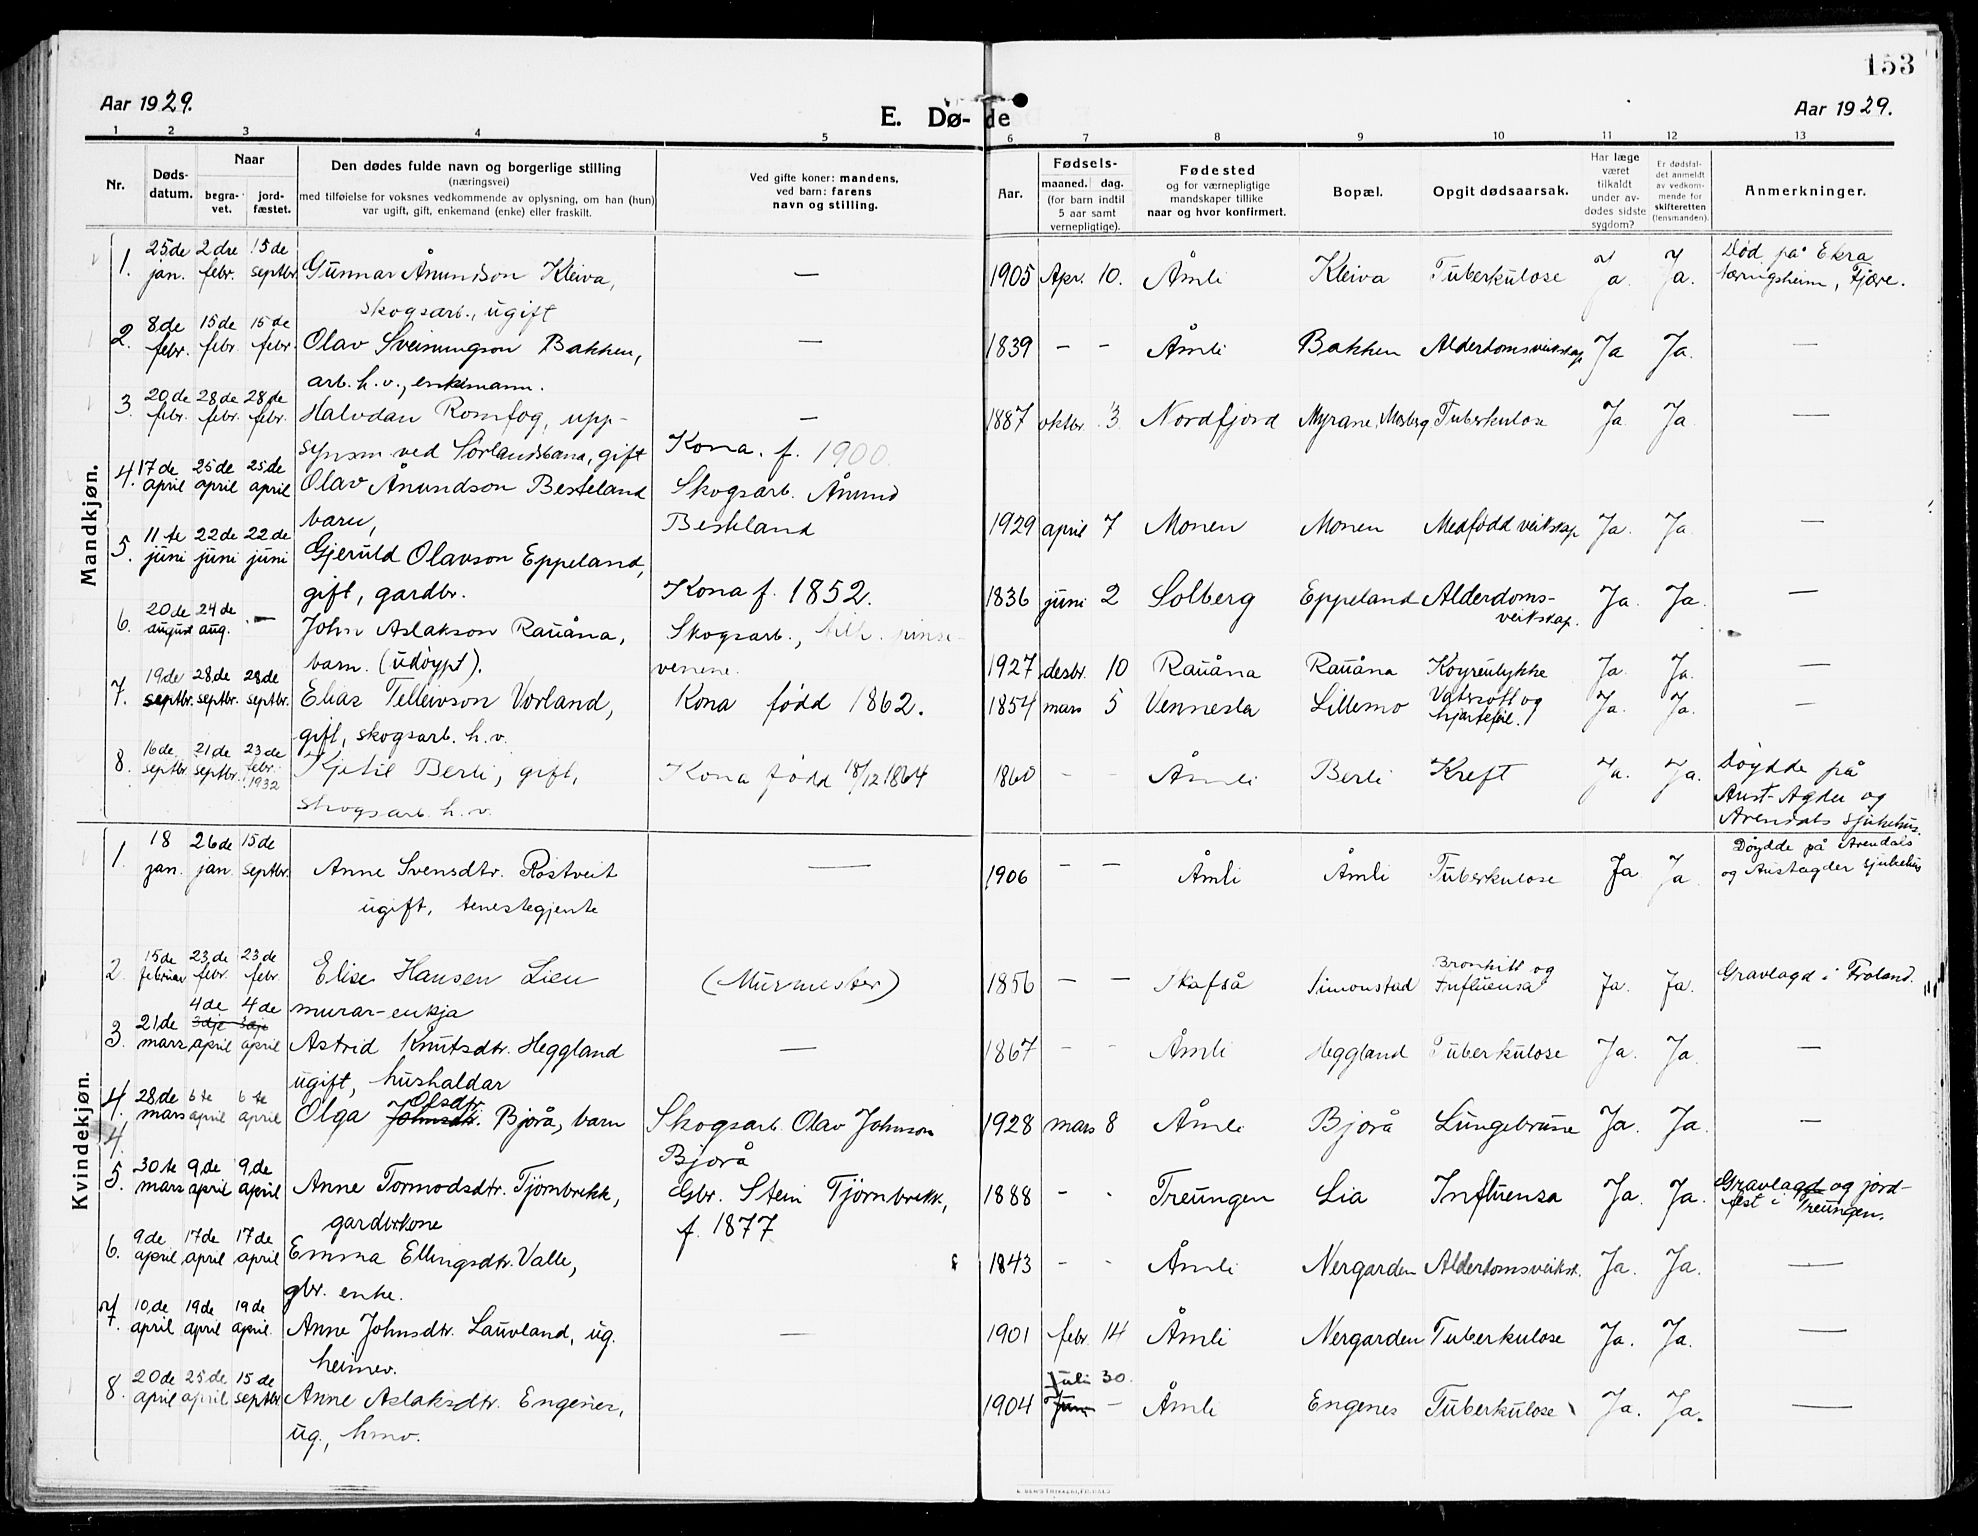 153
Aar 1929. E. Dø- de Aar 1929.
1 2 3 4 5 6 7 8 9 10 11 12 13
Nr. Døds-datum. Naar begra-vet. jord-fæstet. Den dødes fulde navn og borgerlige stilling (næringsvei) med tilføielse for voksnes vedkommende av oplysning, om han (hun) var ugift, gift, enkemand (enke) eller fraskilt. Ved gifte koner: mandens, ved barn: farens navn og stilling. Aar. Fødsels- maaned. dag. (for barn indtil 5 aar samt vernepligtige). Fødested og for værnepligtige mandskaper tillike naar og hvor konfirmert. Bopæl. Opgit dødsaarsak. Har læge været tilkaldt under av-dødes sidste sygdom? Er dødsfal-det anmeldt av vedkom-mende for skifteretten (lensmanden). Anmerkninger.
Mandkjøn.
1. 25de jan. 2dre febr. 15de septbr. Gunnar Ånundson Kleiva, skogsarb., ugift — 1905 Apr. 10. Åmli Kleiva Tuberkulose Ja. Ja. Død på Ekra Fjære.
2. 8de febr. 15de febr. 15de febr. Olav Sveinungson Bakken, arb. h. v., enkemann. — 1839 - - Åmli Bakken Alderdomsveikskap Ja Ja. —
3. 20de febr. 28de febr. 28de febr. Halvdan Romfog, upp-synsm. ved Sørlandsbana, gift — Kona. f. 1900. 1887 oktbr. 3 Nordfjord Myrane, Mosberg Tuberkulose Ja. Ja. —
4. 17de april 25de april 25de april Olav Ånundson Besteland barn, Skogsarb. Ånund Besteland 1929 april 7 Monen Monen Medfødd veikskap Ja. Ja. —
5. 11te juni 22de juni 22de juni Gjeruld Olavson Eppeland, gift, gardbr. Kona f. 1852. 1836 juni 2 Solberg Eppeland Alderdoms-veikskap. Ja. Ja. —
6. 20de august 24de aug. — John Aslakson Rauåna, barn. (udøypt). Skogsarb., pinse-venene. 1927 desbr. 10 Rauåna Rauåna Køyreulykke Ja. Ja. —
7. 19de septbr. 28de septbr. 28de septbr. Elias Telleivson Vorland, gift, skogsarb. h. v. Kona fødd 1862. 1854 mars 5 Vennesla Lillemo Vatersott og hjartefeil. Ja. Ja. —
8. 16de septbr. 21de septbr. 23de febr. 1932 Kjetil Berli, gift, skogsarb. h. v. Kona fødd 18/12 1864 1860 - - Åmli Berli Kreft Ja. Ja. Døydde på Aust-Agder og Arendals sjukehus.
Kvindekjøn.
1. 18 jan. 26de jan. 15de septbr. Anne Svensdtr. Rostveit ugift, tenestegjente — 1906 - — Åmli Åmli Tuberkulose Ja Ja Døydde på Arendals og Austagder sjukehus
2. 15de februar 23de febr. 23de febr. Elise Hansen Lien murar-enkja (Murmester) 1856 — — Skafså Simonstad Bronkitt og Influensa Ja. Ja. Gravlagd i Froland.
3. 21de mars 4de 3dje april 4de 3dje april Astrid Knutsdtr. Heggland ugift, hushaldar — 1867 - - Åmli Heggland Tuberkulose Ja. Ja. —
4. 4. 28de mars 6te april 6te april Olga Johnsdtr. Olsdtr. Bjorå, barn Skogsarb. Olav Johnson Bjorå 1928 mars 8 Åmli Bjorå Lungebrune Ja. Ja. —
5. 30te mars 9de april 9de april Anne Tormodsdtr. Tjørnbrekk, gardbrkone Gbr. Stein Tjørnbrekk, f. 1877 1888 - - Treungen Lia Influensa Ja. Ja. Gravlagd og jord-fest i Treungen.
6. 9de april 17de april 17de april Emma Ellingsdtr. Valle, gbr. enke. 1843 - - Åmli Nergarden Alderdomsveiksk. Ja. Ja. —
7. 10de april 19de april 19de april. Anne Johnsdtr. Lauvland, ug. heimev. — 1901 febr. 14 Åmli Nergarden Tuberkulose Ja. Ja. —
8. 20de april 25de april 15de septbr Anne Aslaksdtr. Engenes, ug., hmv. 1904 Juni - Juli 30. Åmli Engenes Tuberkulose Ja. Ja. —